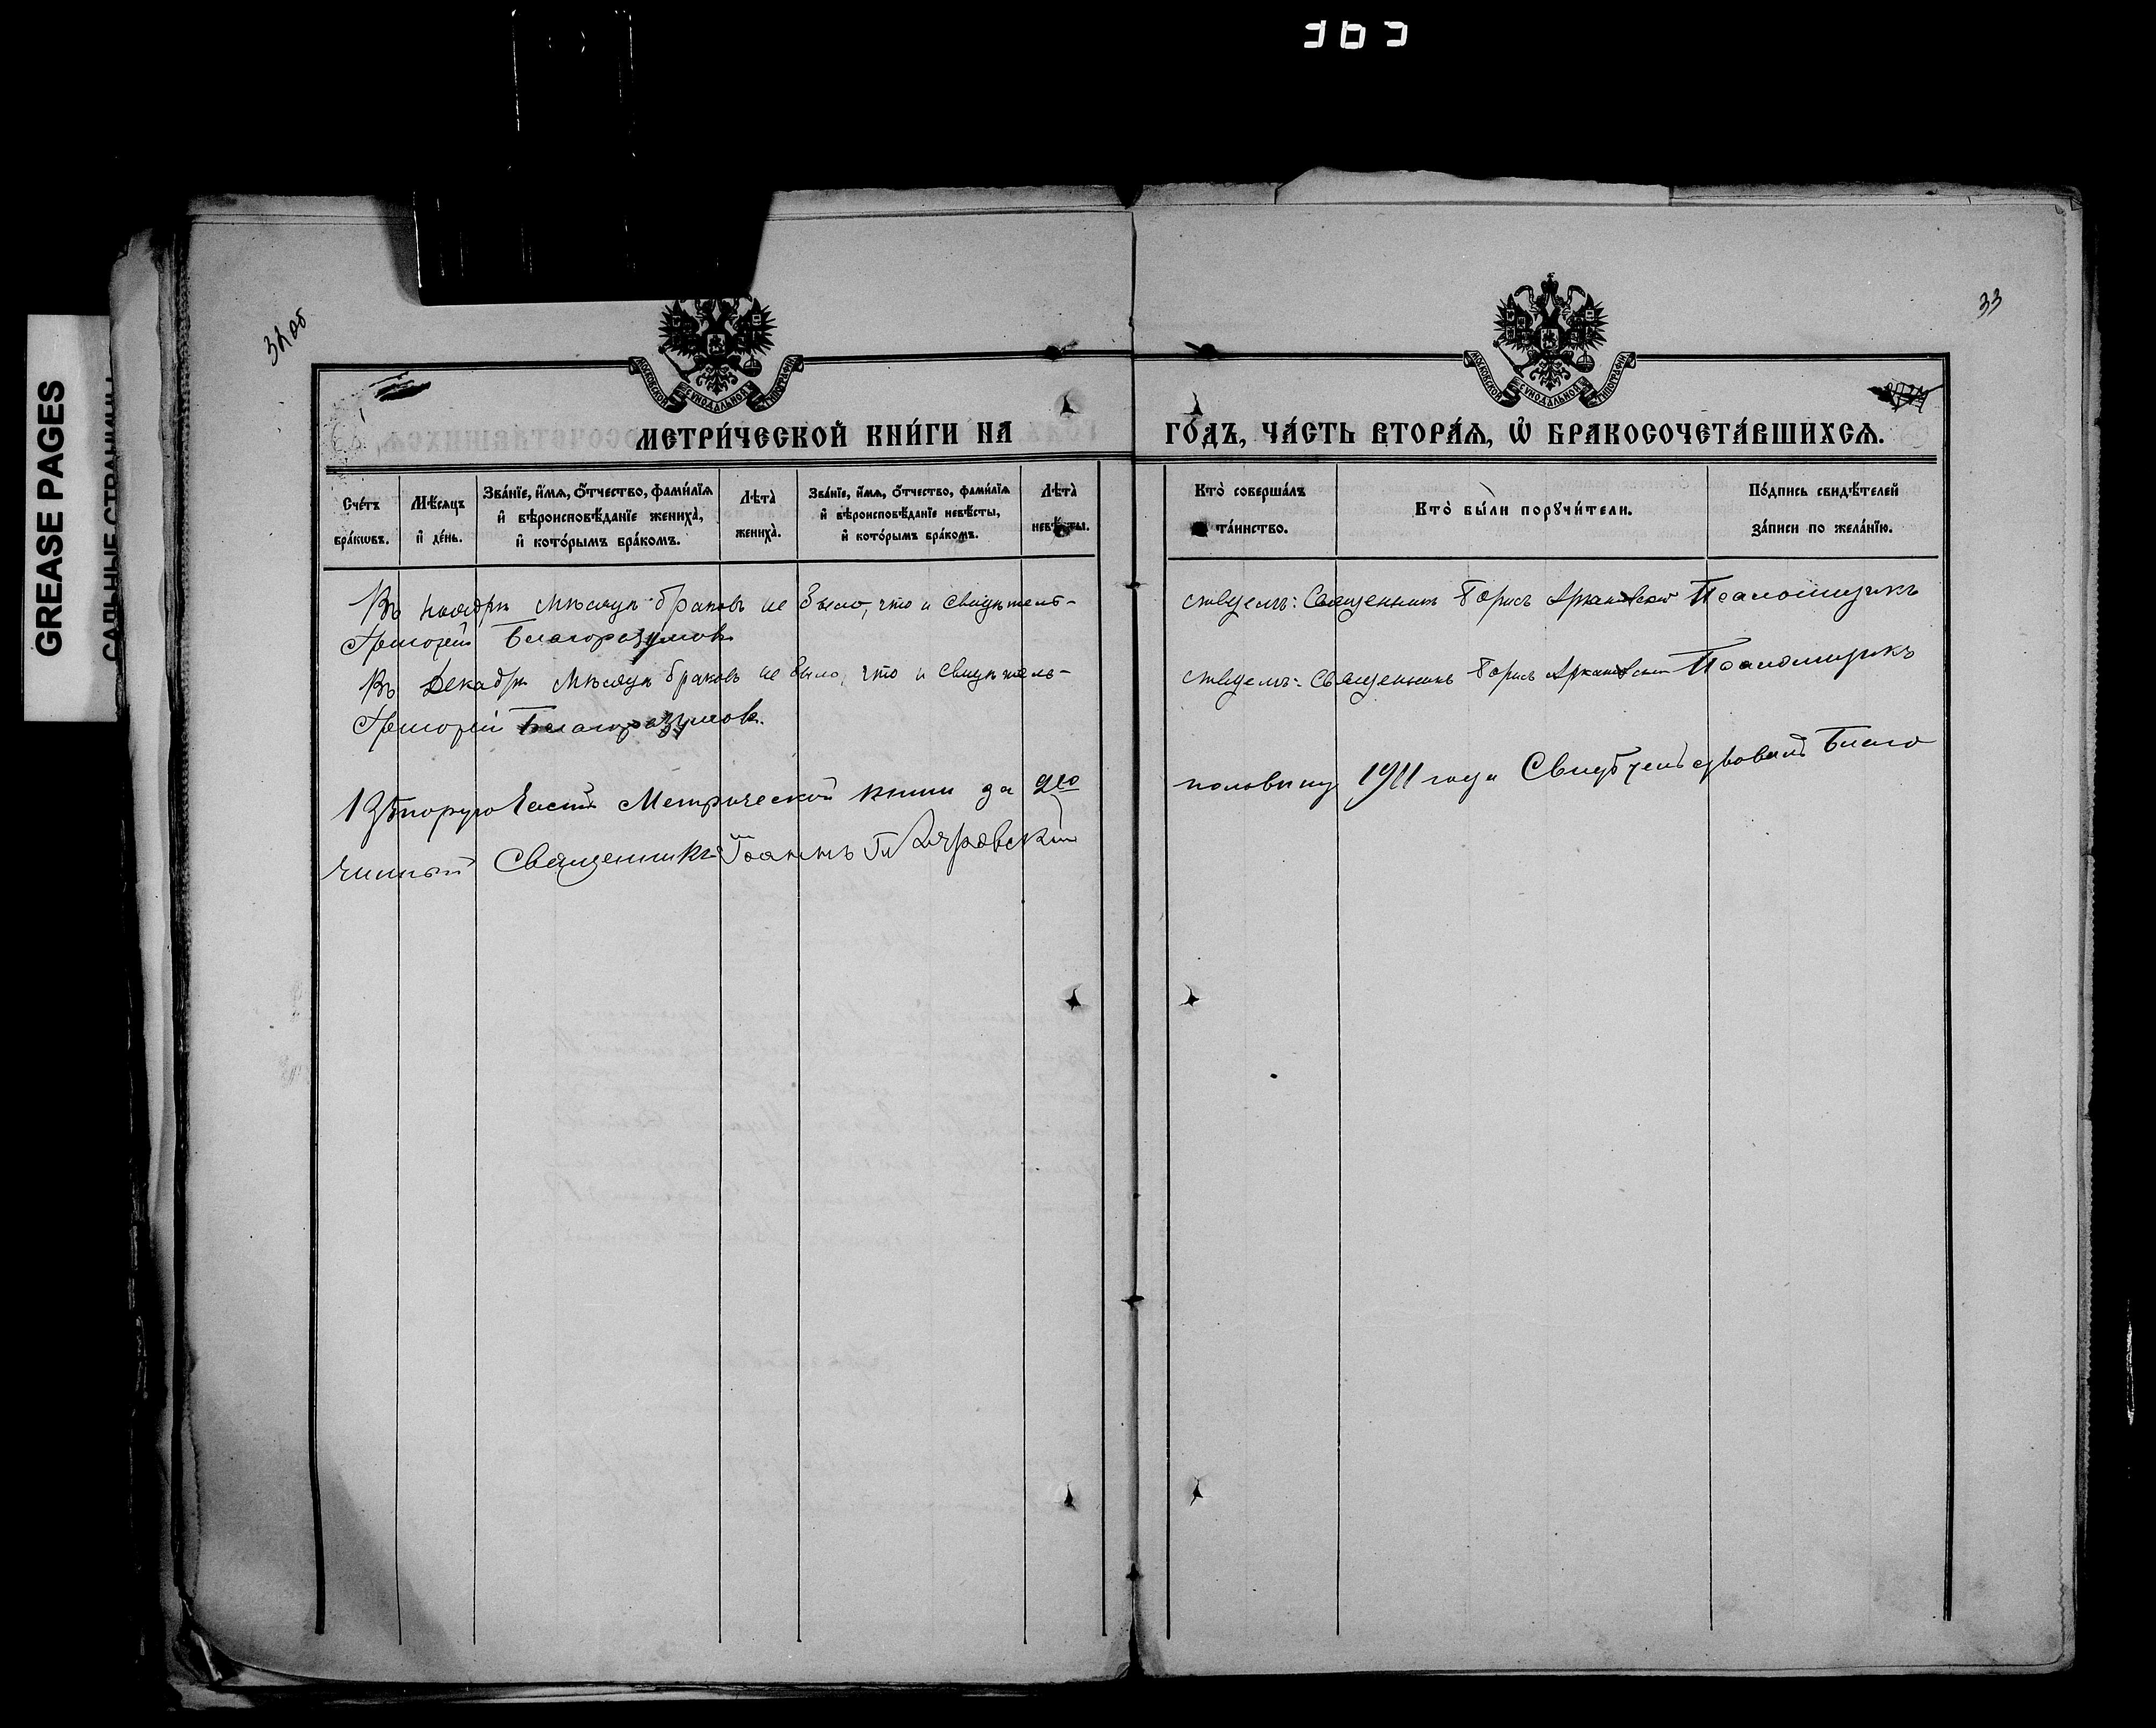 GREASE PAGES
САЛЬНЫЕ СТРАНИЦЫ
33
МОСКОВСКОЙ СѴНОДАЛЬНОЙ ТИПОГРАФІИ
МОСКОВСКОЙ СѴНОДАЛЬНОЙ ТИПОГРАФІИ
МЕТРИ́ЧЕСКОЙ КНИ́ГИ НА ГО́ДЪ, ЧА́СТЬ ВТОРА́Ѧ, Ѡ҆ БРАКОСОЧЕТА́ВШИХСѦ.
Сче́тъ бра́кѡвъ.
Мѣ́сѧцъ и҆ де́нь.
Зва́нїе, и҆́мѧ, о҆́тчество, фами́лїѧ и҆ вѣроисповѣ́данїе жениха̀, и҆ кото́рымъ бра́комъ.
Лѣ́та̀ жениха̀.
Зва́нїе, и҆́мѧ, о҆́тчество, фами́лїѧ и҆ вѣроисповѣ́данїе невѣ́сты, и҆ кото́рымъ бра́комъ.
Лѣ́та̀ невѣ́сты.
Кто̀ соверша́лъ та́инство.
Кто̀ бы́ли порꙋчи́тели.
По́дпись свидѣ́телей за́писи по жела́нїю.
Въ Ноябрѣ Мѣсяцѣ браковъ не было, что и свидѣтель- ствуемъ: Священникъ Борисъ Псаломщикъ
Григорій Благоразумовъ
Въ Декабрѣ Мѣсяцѣ браковъ не было, что и свидѣтель- ствуемъ: Священникъ Борисъ Псаломщикъ
Григорій Благоразумовъ.
Вторую Часть Метрической книги за 2ую половину 1911 года Свидѣтельствовалъ Благо
чинный Священникъ Іоаннъ